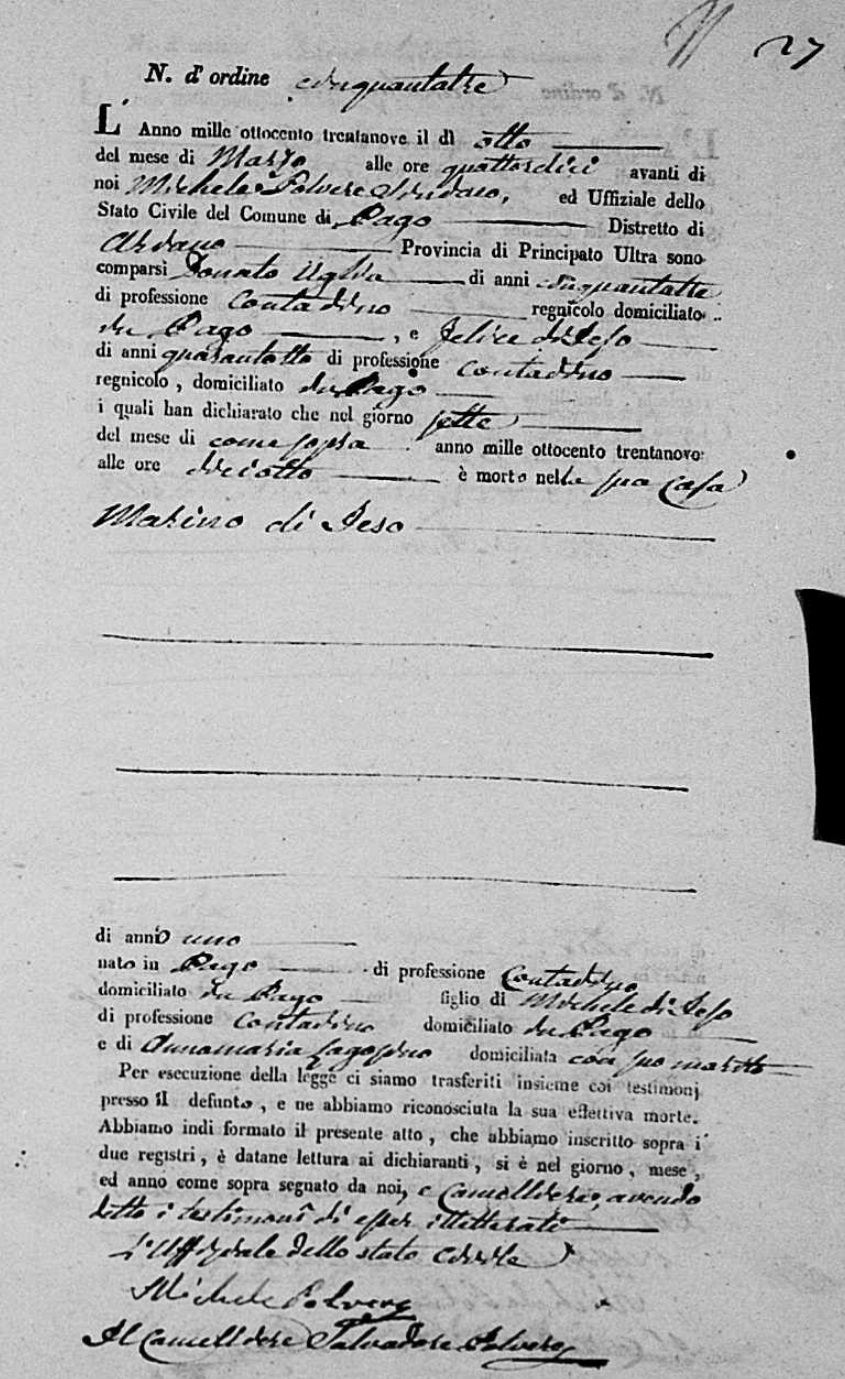 27
N. d' ordine cinquantatre
L' Anno mille ottocento trentanove il dì otto
del mese di Marzo alle ore quattordici avanti di
noi Michele Polvere Sindaco, ed Uffiziale dello
Stato Civile del Comune di Pago Distretto di
Ariano Provincia di Principato Ultra sono
comparsi Donato Uglia di anni cinquantatre
di professione Contadino regnicolo domiciliato
in Pago, e Felice di Jeso
di anni quarantotto di professione Contadino
regnicolo, domiciliato in Pago
i quali han dichiarato che nel giorno sette
del mese di come sopra anno mille ottocento trentanove
alle ore dieciotto è morto nella sua casa
Marino di Jeso
di anno uno
nato in Pago di professione Contadino
domiciliato in Pago figlio di Michele di Jeso
di professione Contadino domiciliato in Pago
e di Annamaria domiciliata con suo marito
Per esecuzione della legge ci siamo trasferiti insieme coi testimonj
presso il defunto, e ne abbiamo riconosciuta la sua effettiva morte.
Abbiamo indi formato il presente atto, che abbiamo inscritto sopra i
due registri, è datane lettura ai dichiaranti, si è nel giorno, mese,
ed anno come sopra segnato da noi, e Cancelliere, avendo
detto i testimonî di esser illetterati
L'Uffiziale dello stato civile
Michele Polvere
Il Cancelliere Salvadore Polvere